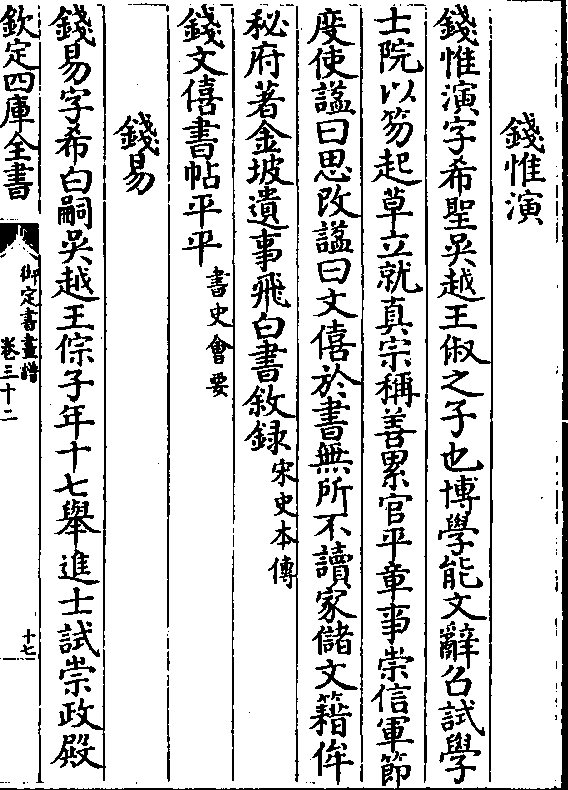 錢惟演
錢惟演字希聖吳越王俶之子也博學能文辭召試學
士院以笏起草立就真宗稱善累官平章事崇信軍節
度使諡曰思改諡曰文僖於書無所不讀家儲文籍侔
秘府著金坡遺事飛白書敘録宋史本傳
錢文僖書帖平平書史會要
錢易
錢易字希白嗣吳越王倧子年十七舉進士試崇政殿
欽定四庫全書
御定書畫譜
卷三十二
十七